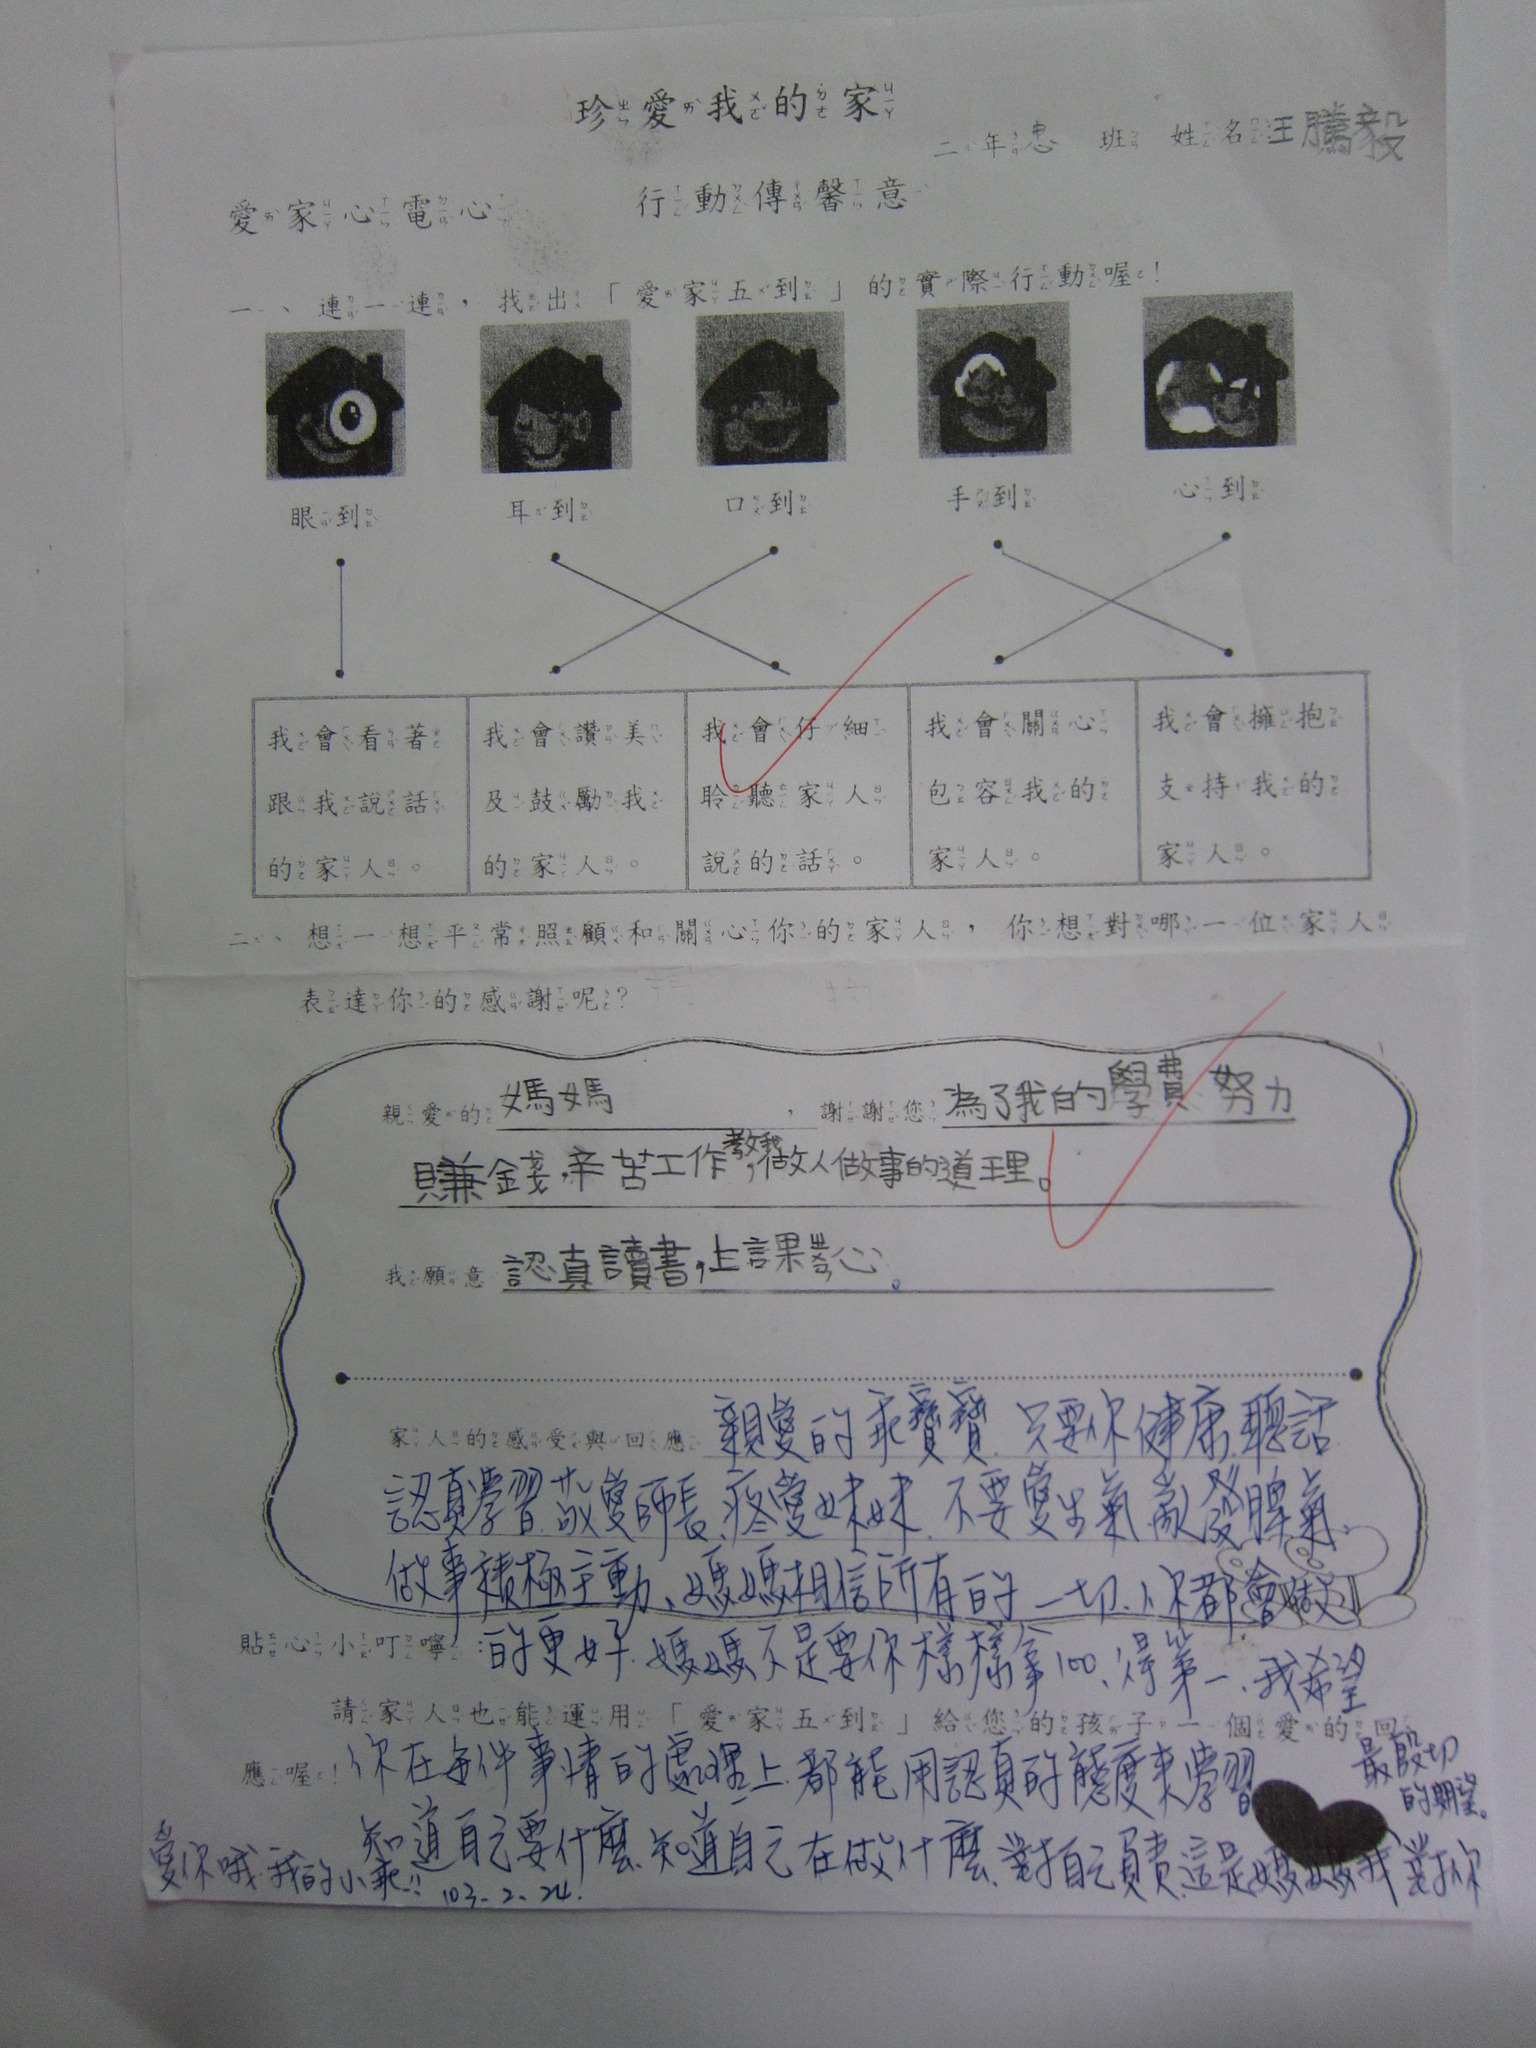 珍愛我的家
二年忠班 姓名王騰毅
愛家心電心 行動傳馨意
一、連一連,找出「愛家五到」的實際行動喔!
眼到 耳到 口到 手到 心到
我會看著跟我說話的家人。
我會讚美及鼓勵我的家人。
我會仔細聆聽家人說的話。
我會關心包容我的家人。
我會擁抱支持我的家人。
二、想一想平常照顧和關心你的家人,你想對哪一位家人
表達你的感謝呢?
親愛的媽媽,謝謝您為了我的學費努力
賺錢,辛苦工作,教我做人做事的道理。
我願意認真讀書,上課ㄓㄨㄢ心。
家人的感受與回應 親愛的乖寶寶.只要你健康.聽話
認真學習.敬愛師長.疼愛妹妹.不要愛生氣.亂發脾氣.
做事積極主動、媽媽相信所有的一切.你都會做
貼心小叮嚀:的更好.媽媽不是要你樣樣拿100、得第一、我希望
請家人也能運用「愛家五到」給您的孩子一個愛的回
應喔!你在每件事情的處理上.都能用認真的態度來學習
知道自己要什麼.知道自己在做什麼.對自己負責.這是媽媽我對你
最殷切
的期望。
愛你哦.我的小乖!! 103.2.24.